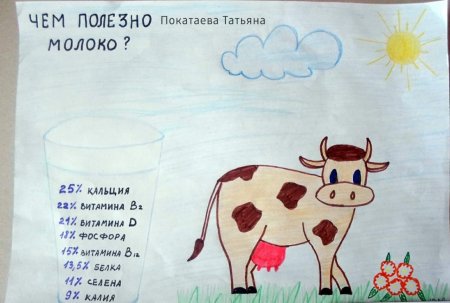 ЧЕМ ПОЛЕЗНО
МОЛОКО?
Покатаева Татьяна
25% КАЛЬЦИЯ
22% ВИТАМИНА B2
21% ВИТАМИНА D
18% ФОСФОРА
15% ВИТАМИНА B12
13,5% БЕЛКА
11% СЕЛЕНА
9% КАЛИЯ